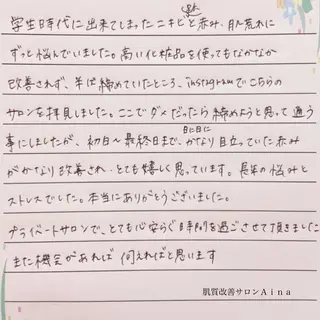 学生時代に出来てしまったニキビと赤み、肌荒れに
ずっと悩んでいました。高い化粧品を使ってもなかなか
改善されず、半ば締めていたところ、instagramでこちらの
サロンを拝見しました。ここでダメだったら締めようと思って通う
事にしましたが、初日〜最終日まで、日に日にかなり目立っていた赤み
がかなり改善され、とても嬉しく思っています。長年の悩みと
ストレスでした。本当にありがとうございました。
プライベートサロンで、とても心安らぐ時間を過ごさせて頂きました
また機会があれば伺えればと思います
肌質改善サロンAina